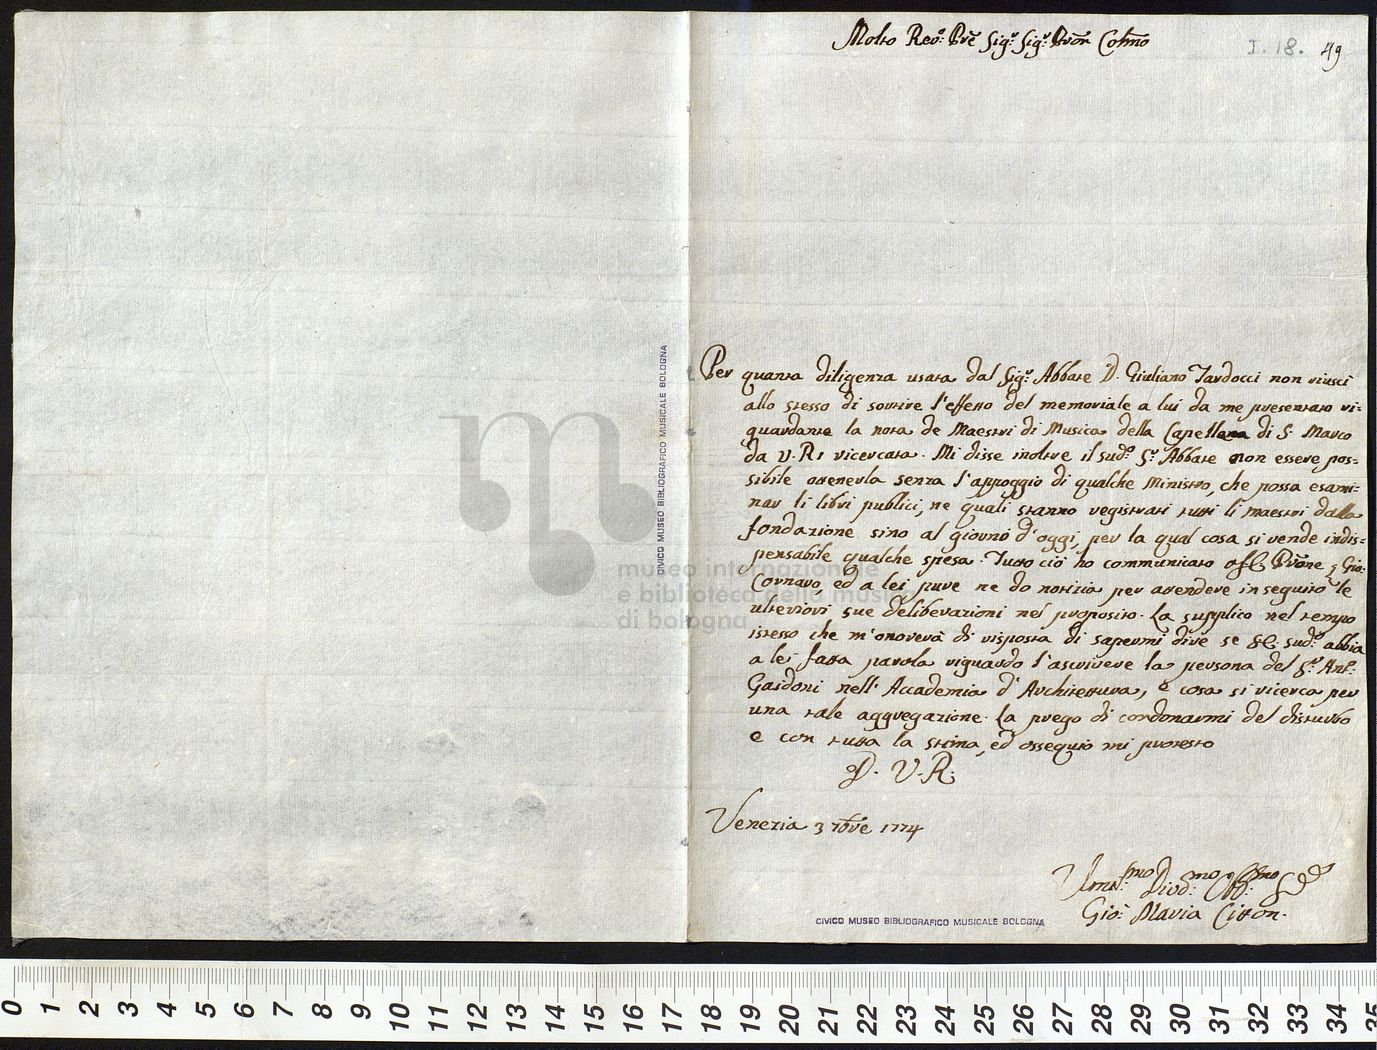 Molto Revo: Pre Sigr: Sigr: Pron Colmo
I. 18. 49
Per quanta diligenza usata dal Sigr: Abbate D. Giuliano Tardocci non riuscì
allo stesso di sortire l'effetto del memoriale a lui da me presentato ri=
guardante la nota de Maestri di Musica della Capella di S. Marco
da V. R. ricercata. Mi disse inoltre il sudo: Sr: Abbate non essere pos=
sibile ottenerla senza l'appoggio di qualche Ministro, che possa esami=
nar li libri publici, ne quali stanno registrati tutti li maestri dalla
fondazione sino al giorno d'oggi, per la qual cosa si rende indis=
pensabile qualche spesa. Tutto ciò ho communicato Prone Gio:
Cornaro, ed a lei pure ne do notizia per attendere in seguito le
ulteriori sue deliberazioni nel proposito. La supplico nel tempo
istesso che m'onorerà di risposta di sapermi dire se S.E. sudo: abbia
a lei fatta parola riguardo l'ascrivere la persona del Sr: Anto:
Gaidoni nell'Accademia d'Architettura, e cosa si ricerca per
una tale aggregazione. La prego di condonarmi del disturbo
e con tutta la stima, ed ossequio mi protesto
D. V. R.
Venezia 3 7bre 1774
Umil:mo Divo:mo Obb:mo
Gio: Maria Citton.
CIVICO MUSEO BIBLIOGRAFICO MUSICALE BOLOGNA
CIVICO MUSEO BIBLIOGRAFICO MUSICALE BOLOGNA
museo internazionale
e biblioteca della musica
di bologna
0 1 2 3 4 5 6 7 8 9 10 11 12 13 14 15 16 17 18 19 20 21 22 23 24 25 26 27 28 29 30 31 32 33 34 35